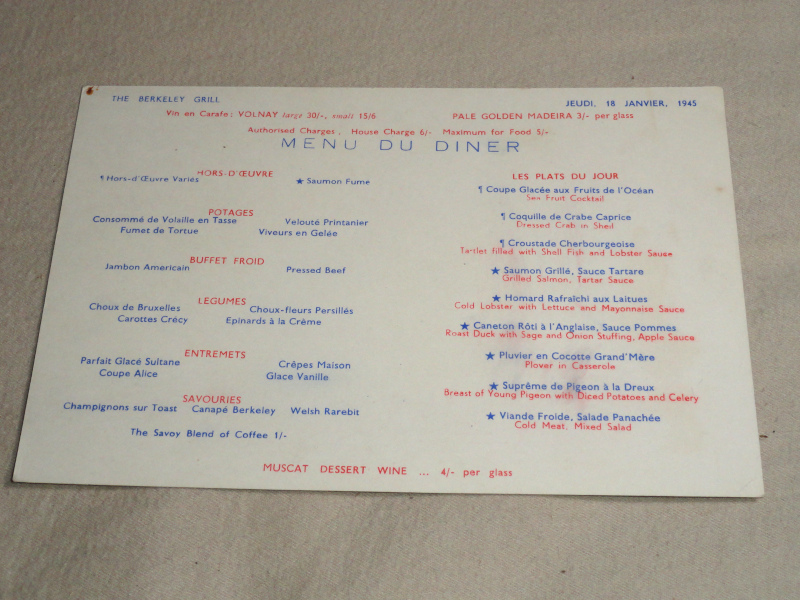 THE BERKELEY GRILL
JEUDI, 18 JANVIER, 1945
Vin en Carafe: VOLNAY large 30/-, small 15/6
PALE GOLDEN MADEIRA 3/- per glass
Authorised Charges. House Charge 6/- Maximum for Food 5/-
MENU DU DINER
HORS-D'ŒUVRE
¶ Hors-d'Œuvre Variés ★ Saumon Fume
POTAGES
Consommé de Volaille en Tasse Velouté Printanier
Fumet de Tortue Viveurs en Gelée
BUFFET FROID
Jambon Americain Pressed Beef
LEGUMES
Choux de Bruxelles Choux-fleurs Persillés
Carottes Crécy Epinards à la Crème
ENTREMETS
Parfait Glacé Sultane Crêpes Maison
Coupe Alice Glace Vanille
SAVOURIES
Champignons sur Toast Canapé Berkeley Welsh Rarebit
The Savoy Blend of Coffee 1/-
LES PLATS DU JOUR
¶ Coupe Glacée aux Fruits de l'Océan
Sea Fruit Cocktail
¶ Coquille de Crabe Caprice
Dressed Crab in Shell
¶ Croustade Cherbourgeoise
Tartlet filled with Shell Fish and Lobster Sauce
★ Saumon Grillé, Sauce Tartare
Grilled Salmon, Tartar Sauce
★ Homard Rafraîchi aux Laitues
Cold Lobster with Lettuce and Mayonnaise Sauce
★ Caneton Rôti à l'Anglaise, Sauce Pommes
Roast Duck with Sage and Onion Stuffing, Apple Sauce
★ Pluvier en Cocotte Grand'Mère
Plover in Casserole
★ Suprême de Pigeon à la Dreux
Breast of Young Pigeon with Diced Potatoes and Celery
★ Viande Froide, Salade Panachée
Cold Meat, Mixed Salad
MUSCAT DESSERT WINE ... 4/- per glass